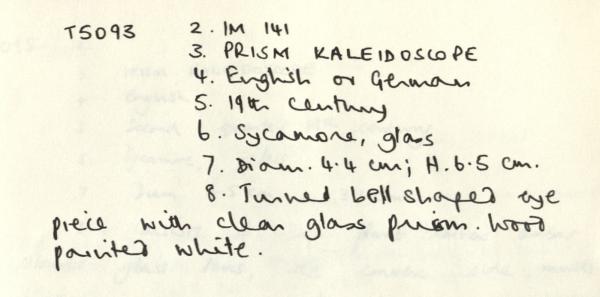 T5093 2. IM 141
3. PRISM KALEIDOSCOPE
4. English or German
5. 19th century
6. Sycamore, glass
7. Diam. 4.4 cm; H. 6.5 cm.
8. Turned bell shaped eye
piece with clear glass prism. Wood
painted white.